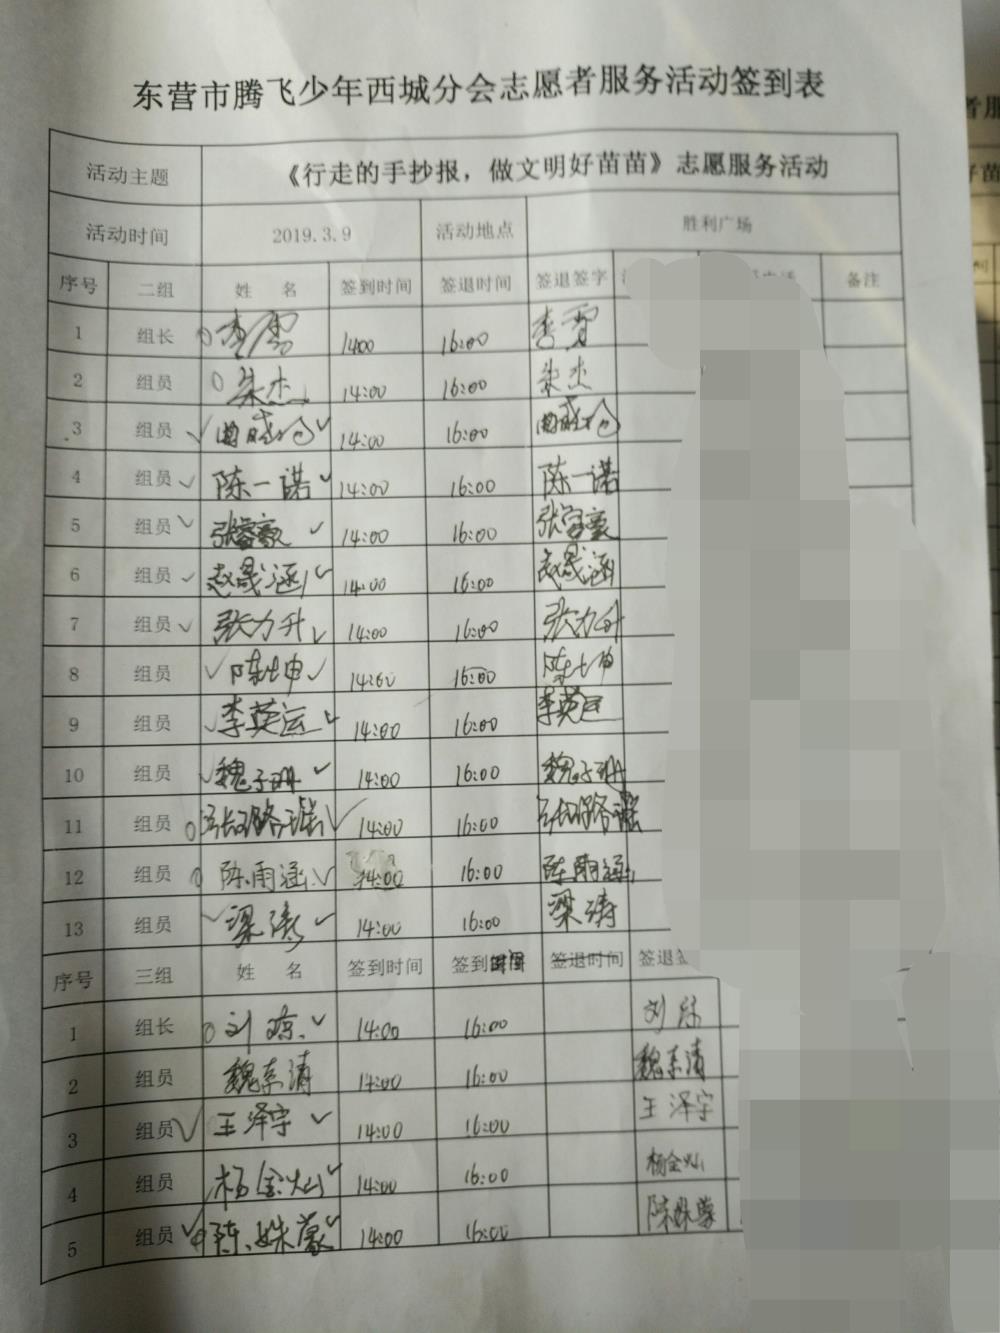 东营市腾飞少年西城分会志愿者服务活动签到表
活动主题 《行走的手抄报，做文明好苗苗》志愿服务活动
活动时间 2019.3.9 活动地点 胜利广场
序号 二组 姓 名 签到时间 签退时间 签退签字 备注
1 组长 李雪 14:00 16:00 李雪
2 组员 朱杰 14:00 16:00 朱杰
3 组员 14:00 16:00
4 组员 陈一诺 14:00 16:00 陈一诺
5 组员 张睿豪 14:00 16:00 张睿豪
6 组员 赵晟涵 14:00 16:00 赵晟涵
7 组员 张力升 14:00 16:00 张力升
8 组员 14:00 16:00
9 组员 李英运 14:00 16:00 李英运
10 组员 魏子珊 14:00 16:00 魏子珊
11 组员 14:00 16:00
12 组员 陈雨涵 14:00 16:00 陈雨涵
13 组员 梁涛 14:00 16:00 梁涛
序号 三组 姓 名 签到时间 签到时间 签退时间 签退
1 组长 14:00 16:00
2 组员 14:00 16:00
3 组员 王泽宇 14:00 16:00 王泽宇
4 组员 杨金灿 14:00 16:00 杨金灿
5 组员 陈姝蒙 14:00 16:00 陈姝蒙
者服